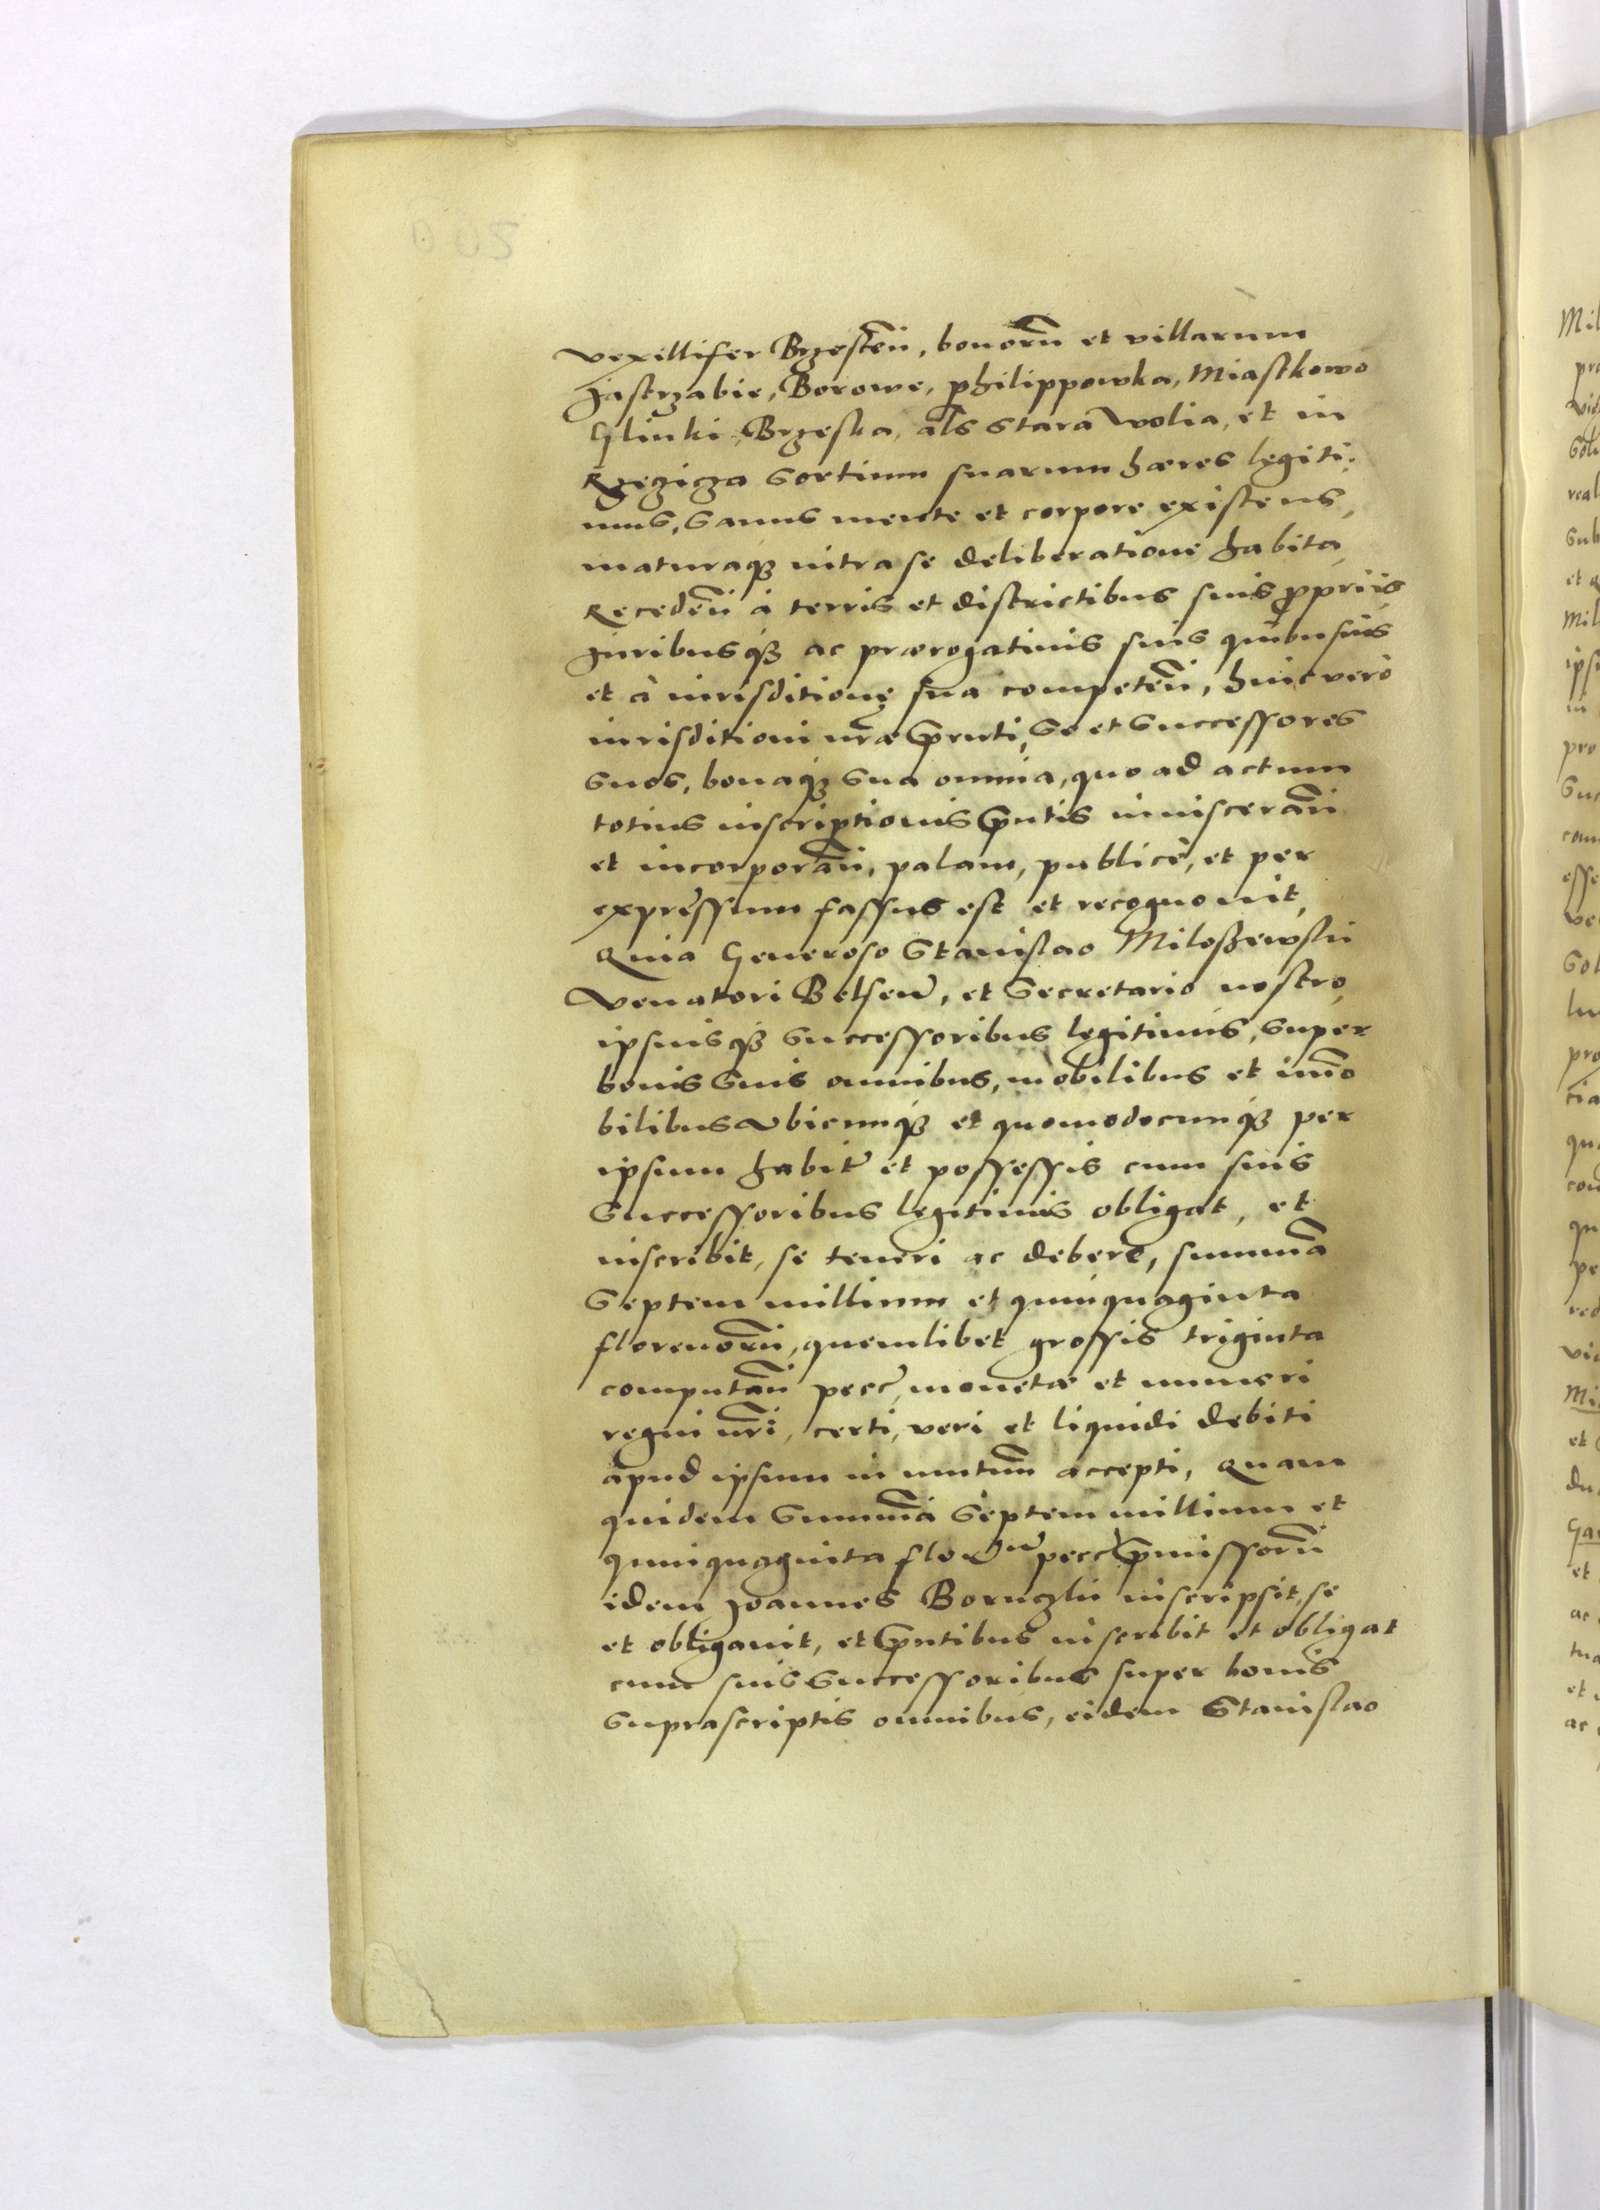 vexillifer Brzesten̄, bonorū et villarum
Jastrzabie, Borowe, philippowka, Miastkowo
Glinki, Brzeska, als Stara Wolia, et in
Rzezicza Sortium suarum hæres legiti:
mus, Sanus mente et corpore existens,
maturaqȝ intra se deliberatione habita
Receden̄ à terris et districtibus suis propriis
Juribusqȝ ac prærogatiuis suis quibusuis
et à iurisditione sua competen̄, huic vero
iurisditioni nr̄æ p̄nti, Se et Successores
Suos, bonaqȝ Sua omnia, quo ad actum
totius inscriptionis p̄ntis inuisceran̄
et incorporan̄, palam, publicè, et per
expressum fassus est et recognouit,
Quia Generoso Stanislao Miloszewskii
Venatori Belsen̄, et Secretario nostro,
ipsiusqȝ Successoribus legitimis, Super
bonis Suis omnibus, mobilibus et im̄o
bilibus vbicunqȝ et quomodocunqȝ per
ipsum habit̄ et possessis cum suis
Successoribus legitimis obligat, et
inscribit, se teneri ac debere, summā
Septem millium et quinquaginta
florenorū, quemlibet grossis triginta
computan̄ pecc̄, monetæ et numeri
regni nr̄i, certi, veri et liquidi debiti
apud ipsum in mutuū accepti, Quam
quidem Summā Septem millium et
quinquaginta flor pecc̄ p̄missorū
idem Joannes Boruczkii inscripsit, se
et obligauit, et p̄ntibus inscribit et obligat
cum suis Successoribus super bonis
Suprascriptis omnibus, eidem Stanislao